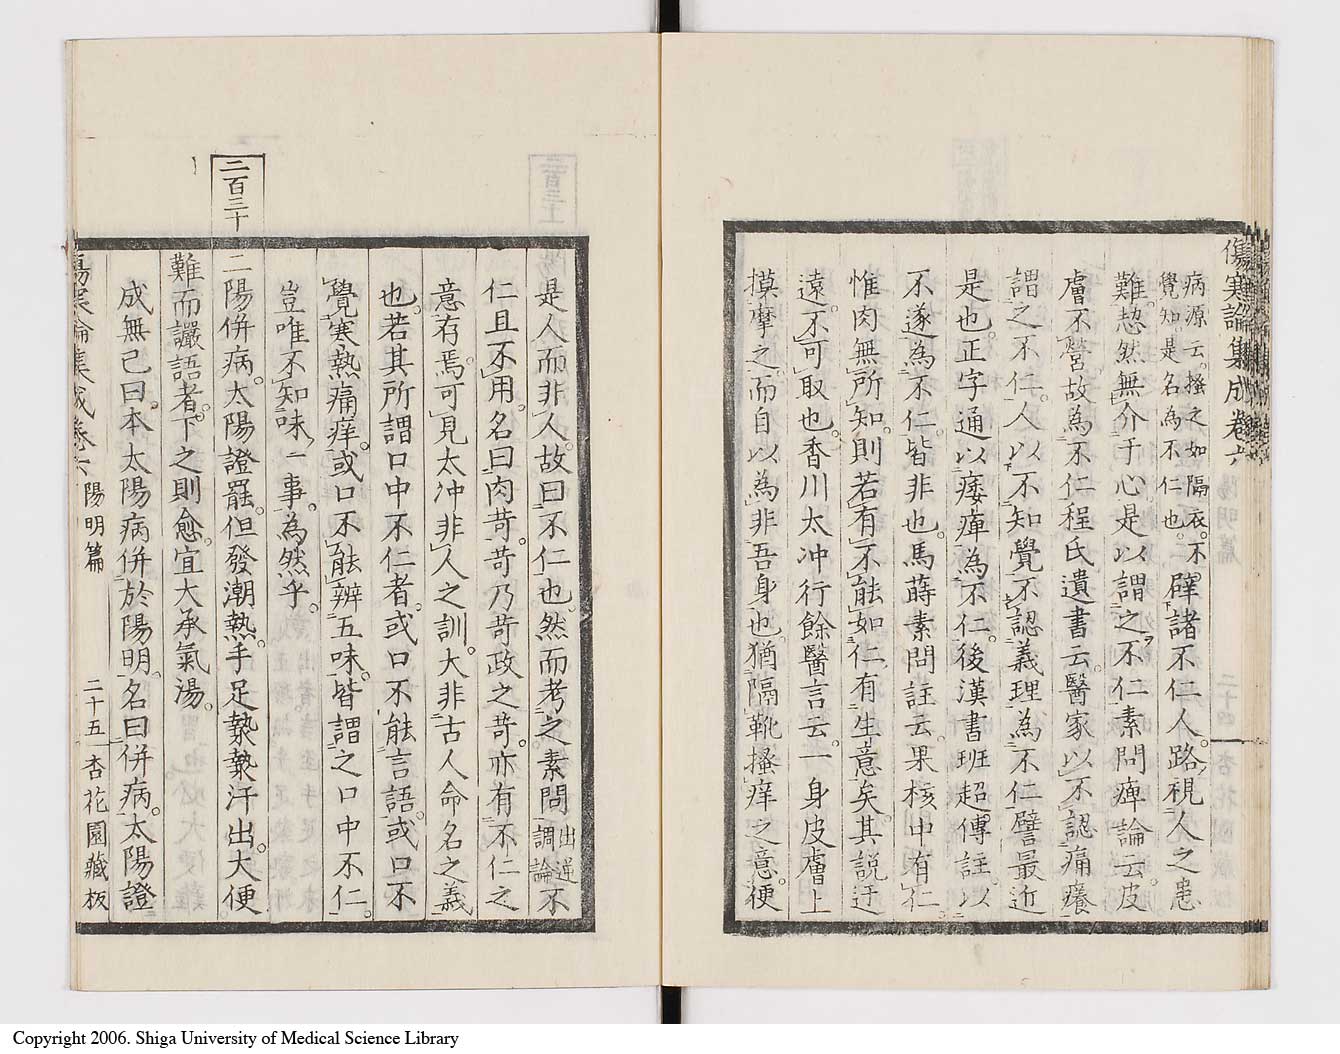 傷寒論集成卷六
病源云。搔之如隔衣。不
覺知。是名為不仁也。
譬諸不仁人。路視人之患
難。恝然無介于心。是以謂之不仁。素問痺論云。皮
膚不營。故為不仁。程氏遺書云。醫家以不認痛癢
謂之不仁。人以不知覺不認義理為不仁。譬最近
是也。正字通以痿痺為不仁。後漢書班超傳註。以
不遂為不仁。皆非也。馬蒔素問註云。果核中有仁。
惟肉無所知。則若有不能如仁有生意矣。其說迂
遠。不可取也。香川太冲行餘醫言云。一身皮膚上
摸摩之。而自以為非吾身也。猶隔靴搔痒之意。便
是人而非人。故曰不仁也。然而考之素問
出逆
調論
不
仁且不用。名曰肉苛。苛乃苛政之苛。亦有不仁之
意存焉。可見太冲非人之訓。大非古人命名之義
也。若其所謂口中不仁者。或口不能言語。或口不
覺寒熱痛痒。或口不能辨五味。皆謂之口中不仁。
豈唯不知味一事為然乎。
二百三十
二陽併病。太陽證罷。但發潮熱。手足漐漐汗出。大便
難而讝語者。下之則愈。宜大承氣湯。
成無己曰。本太陽病併於陽明。名曰併病。太陽證
傷寒論集成卷六 陽明篇 二十五 杏花園藏板
Copyright 2006. Shiga University of Medical Science Library